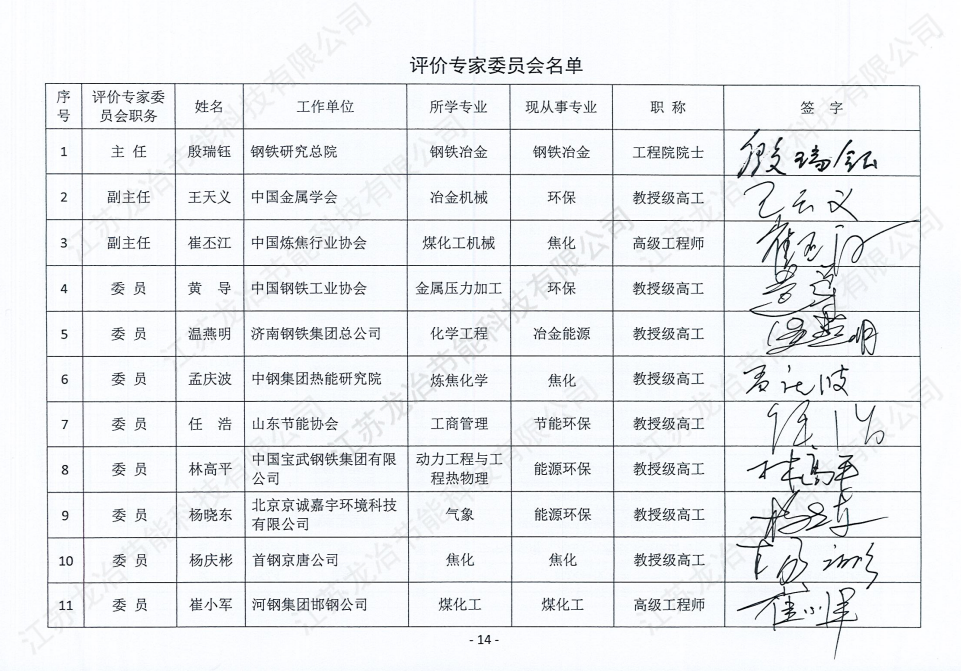 评价专家委员会名单
序号 评价专家委员会职务 姓名 工作单位 所学专业 现从事专业 职 称 签 字
1 主 任 殷瑞钰 钢铁研究总院 钢铁冶金 钢铁冶金 工程院院士 殷瑞钰
2 副主任 王天义 中国金属学会 冶金机械 环保 教授级高工 王天义
3 副主任 崔丕江 中国炼焦行业协会 煤化工机械 焦化 高级工程师 崔丕江
4 委 员 黄 导 中国钢铁工业协会 金属压力加工 环保 教授级高工 黄导
5 委 员 温燕明 济南钢铁集团总公司 化学工程 冶金能源 教授级高工 温燕明
6 委 员 孟庆波 中钢集团热能研究院 炼焦化学 焦化 教授级高工 孟庆波
7 委 员 任 浩 山东节能协会 工商管理 节能环保 教授级高工 任浩
8 委 员 林高平 中国宝武钢铁集团有限公司 动力工程与工程热物理 能源环保 教授级高工 林高平
9 委 员 杨晓东 北京京诚嘉宇环境科技有限公司 气象 能源环保 教授级高工 杨晓东
10 委 员 杨庆彬 首钢京唐公司 焦化 焦化 教授级高工
11 委 员 崔小军 河钢集团邯钢公司 煤化工 煤化工 高级工程师 崔小军
- 14 -
江苏龙冶节能科技有限公司